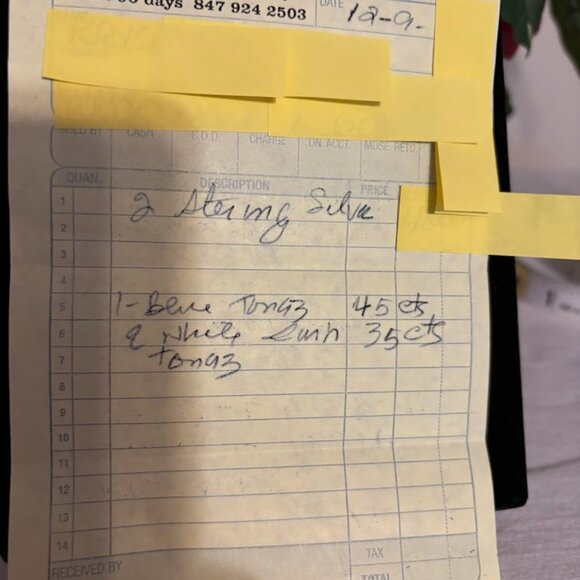 30 days 847 924 2503
DATE
12-9-
SOLD BY CASH C.O.D. CHARGE ON ACCT. MDSE. RETD.
QUAN. DESCRIPTION PRICE
1 2 Stering Silve
2
3
4
5 1- Blue Tonaz 45 cts
6 & White 35 cts
7 Tonaz
8
9
10
11
12
13
14
TAX
RECEIVED BY
TOTAL